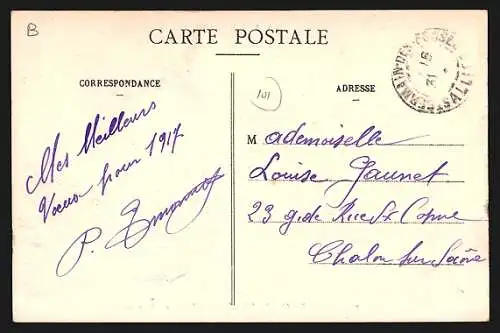 B
CARTE POSTALE
CORRESPONDANCE
ADRESSE
101
Mes Meilleurs
Vœux pour 1917
P.
Mademoiselle
Louise Jaunet
23 gde Rue St Cosme
Chalon sur Saône
31
16